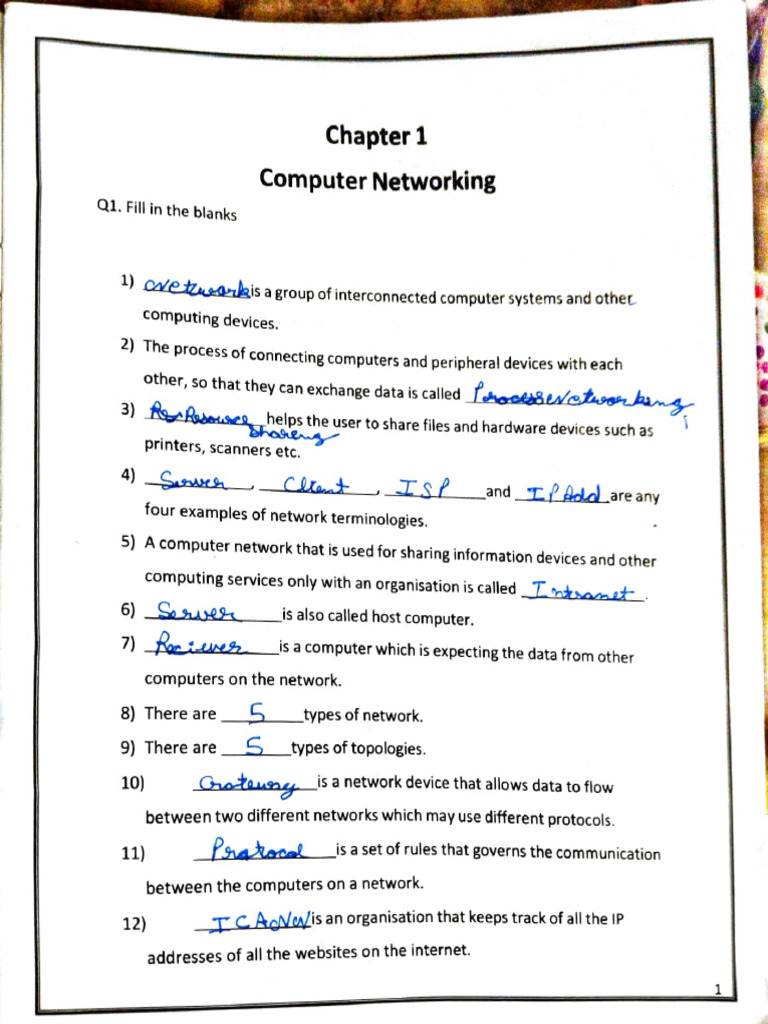 Chapter 1
Computer Networking
Q1. Fill in the blanks
1) Network is a group of interconnected computer systems and other
computing devices.
2) The process of connecting computers and peripheral devices with each
other, so that they can exchange data is called Networking
3) Resource helps the user to share files and hardware devices such as
Sharing
printers, scanners etc.
4) Server, Client, ISP and IP Add are any
four examples of network terminologies.
5) A computer network that is used for sharing information devices and other
computing services only with an organisation is called Intranet.
6) Server is also called host computer.
7) Reciever is a computer which is expecting the data from other
computers on the network.
8) There are 5 types of network.
9) There are 5 types of topologies.
10) Gateway is a network device that allows data to flow
between two different networks which may use different protocols.
11) Protocol is a set of rules that governs the communication
between the computers on a network.
12) ICANN is an organisation that keeps track of all the IP
addresses of all the websites on the internet.
1